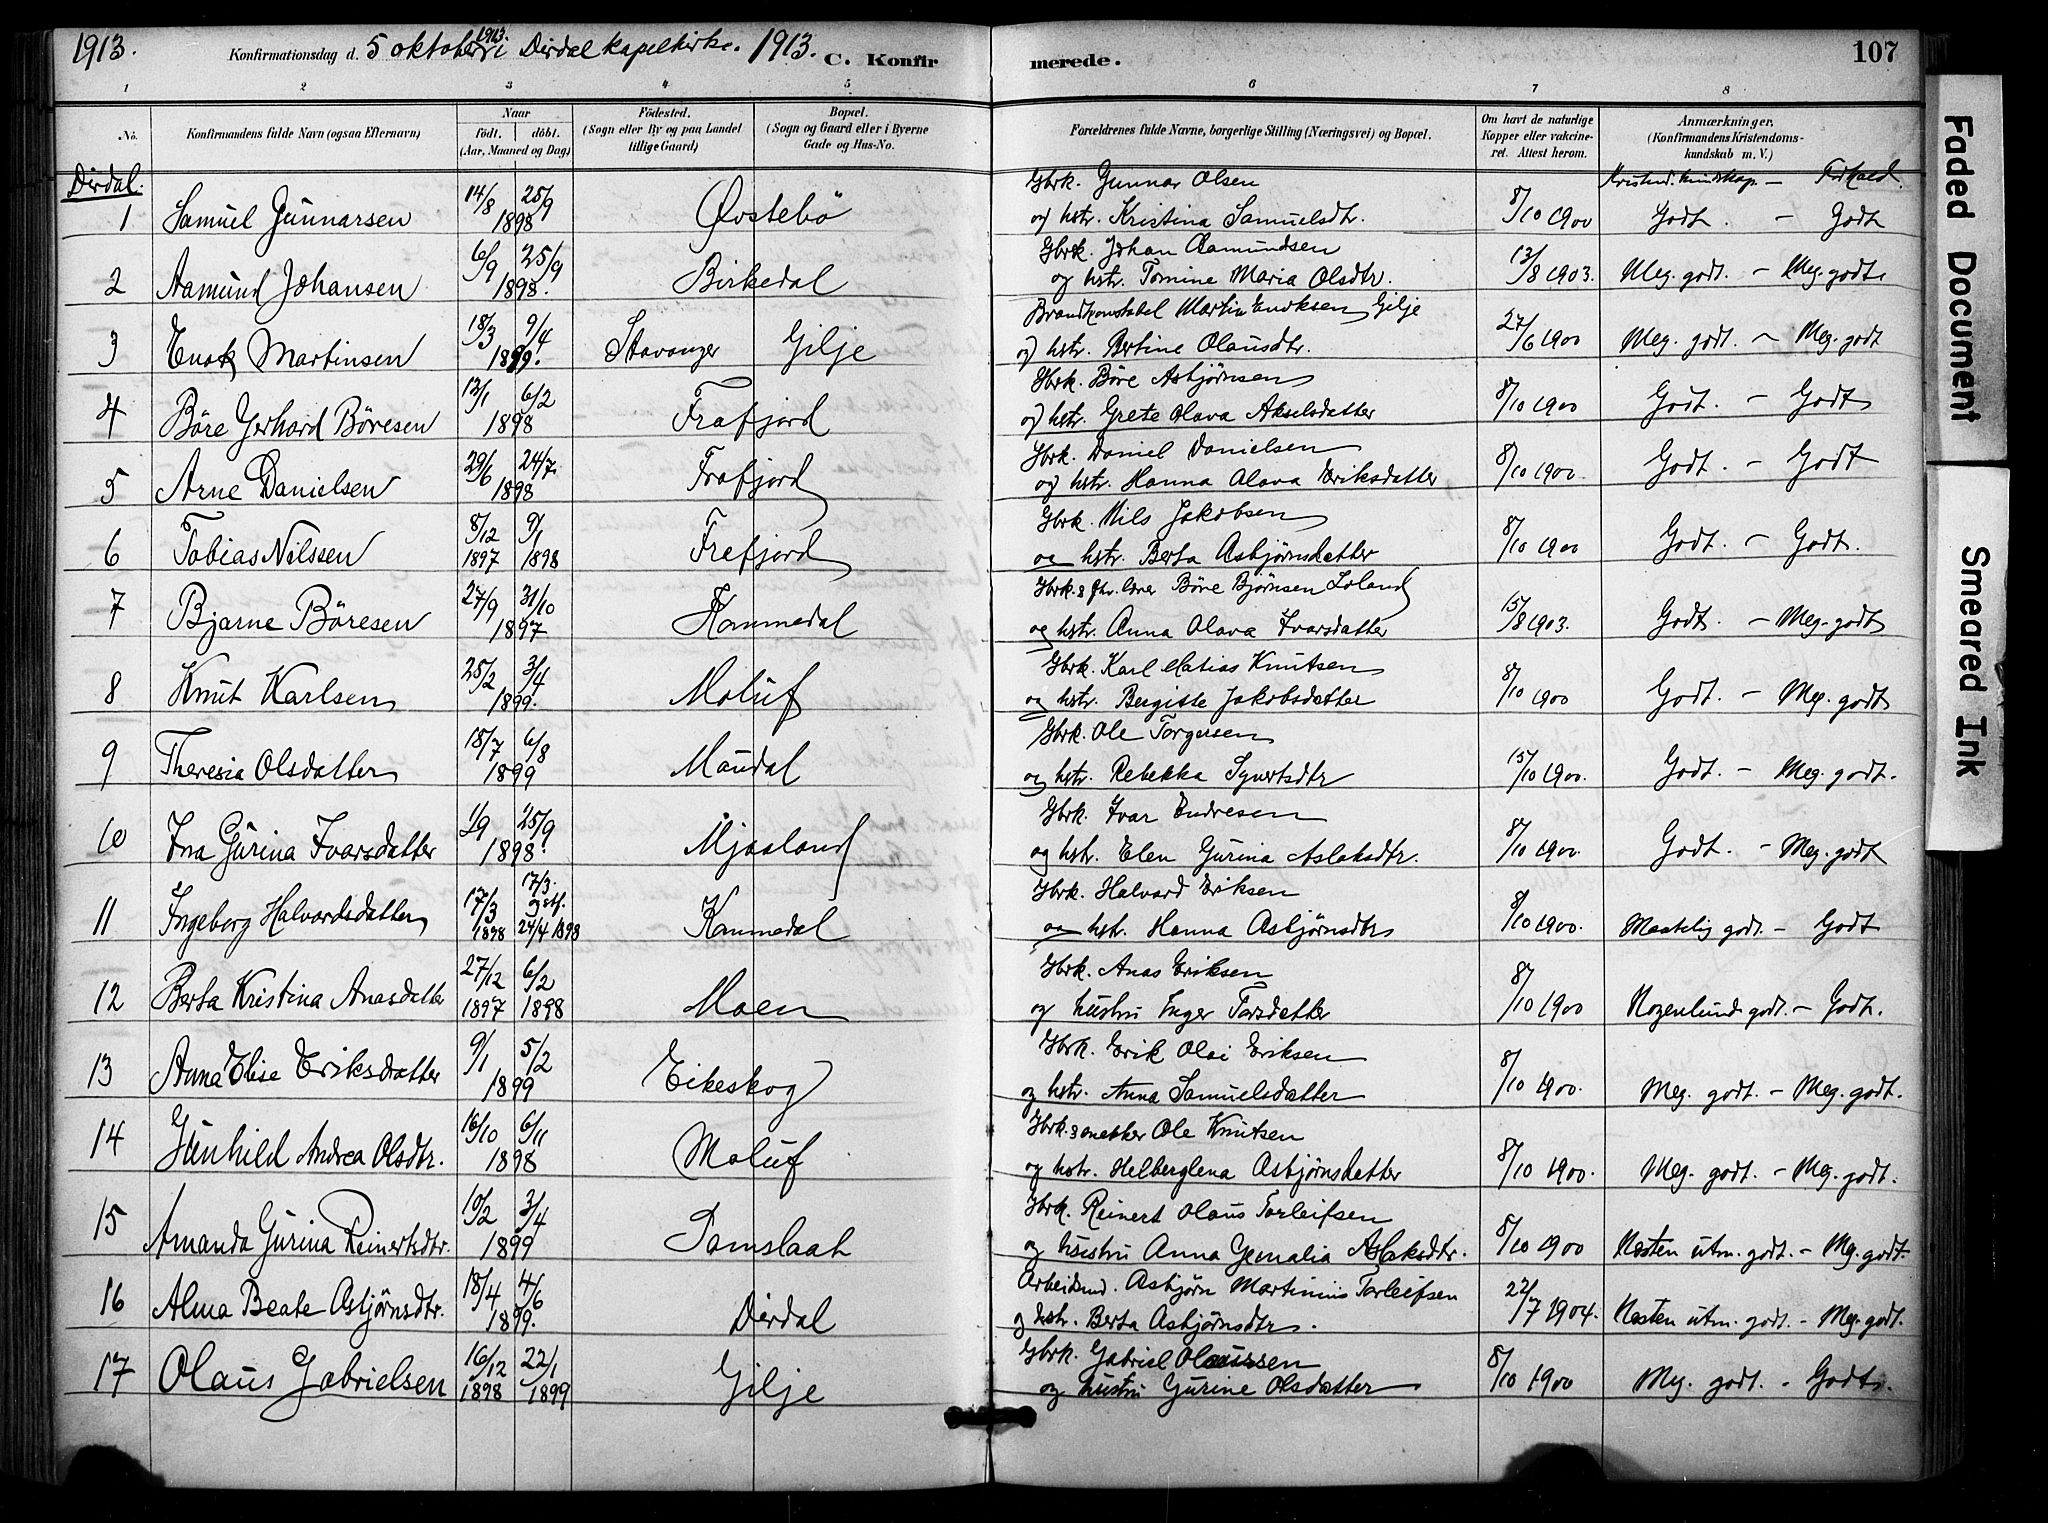 1913. Konfirmationsdag d. 5 oktober 1913. i Dirdal kapelkirke. 1913. C. Konfirmerede. 107
1 2 3 4 5 6 7 8
No. Konfirmandens fulde Navn (ogsaa Efternavn) Naar født. døbt. (Aar, Maaned og Dag) Fødested. (Sogn eller By og paa Landet tillige Gaard) Bopæl. (Sogn og Gaard eller i Byerne Gade og Hus-No. Forældrenes fulde Navne, borgerlige Stilling (Næringsvei) og Bopæl. Om havt de naturlige Kopper eller vakcineret. Attest herom. Anmærkninger, (Konfirmandens Kristendomskundskab m. V.)
Dirdal. Kristend. kundskap. — Forhold.
1 Samuel Gunnarsen 14/8 25/9 1898 Øvstebö Gbrk. Gunnar Olsen
og hstr. Kristina Samuelsdtr. 8/10 1900 Godt. — Godt
2 Aamund Johansen 6/9 25/9 1898. Birkedal Gbrk. Johan Aamundsen
og hstr. Tomine Maria Olsdtr. 13/8 1903. Meg. godt. — Meg. godt.
3 Enok Martinsen 18/3 9/4 1899. Stavanger Gilje Brandkonstabel Martin Enoksen Gilje
og hstr. Bertine Olausdtr. 27/6 1900 Meg. godt. — Meg. godt
4 Böre Gerhard Böresen 13/1 6/2 1898 Frafjord Gbrk. Böre Asbjørnsen
og hstr. Grete Olava Akselsdatter 8/10 1900 Godt. — Godt
5 Arne Danielsen 29/6 24/7. 1898 Frafjord Gbrk. Daniel Danielsen
og hstr. Hanna Olava Eriksdatter 8/10 1900. Godt. — Godt
6 Tobias Nilssen 8/12 1897 9/1 1898 Frafjord Gbrk. Nils Jakobsen
og hstr. Berta Asbjørnsdatter 8/10 1900 Godt. — Godt.
7 Bjarne Böresen 27/9 31/10 1897 Kommedal Gbrk. & Böre Bjørnsen Loland
og hstr. Anna Olava Ivarsdatter 15/8 1903. Godt. — Meg. godt
8 Knut Karlsen 25/2 3/4 1899. Moluf Gbrk. Karl Matias Knutsen
og hstr. Bergitte Jakobsdatter 8/10 1900 Godt. — Meg. godt
9 Theresia Olsdatter 18/7 6/8 1899 Maudal Gbrk. Ole Torgersen
og hstr. Rebekka Synertsdtr 15/10 1900. Godt. — Meg. godt.
10 Ina Gurina Ivarsdatter 1/9 25/9 1898. Mjaaland Gbrk. Ivar Endresen
og hstr. Elen Gurina Aslaksdtr. 8/10 1900. Godt. — Meg. godt
11 Ingeborg Halvardsdatter 17/3 1898 17/3. og stf. 24/4 1898 Kommedal Gbrk. Halvard Eriksen
og hstr. Hanna Asbjørnsdtr 8/10 1900. Maatelig godt. — Godt
12 Berta Kristina Anasdatter 27/12 1897 6/2 1898 Moen Gbrk. Anas Eriksen
og hustru Inger Tarsdatter 8/10 1900 Nogenlund godt. — Godt.
13 Anna Elise Eriksdatter 9/1 5/2 1899 Eikeskog Gbrk. Erik Olai Eriksen
og hstr. Anna Samuelsdatter 8/10 1900. Meg. godt. — Meg. godt.
14 Gunhild Andrea Olsdtr. 16/10 6/11 1898 Moluf Gbrk. & snekker Ole Knutsen
og hstr. Helberglena Asbjørnsdatter 8/10 1900. Meg. godt. — Meg. godt.
15 Amanda Gurina Reinertsdtr. 10/2 3/4 1899 Tamslaat Gbrk. Reinert Olaus Torleifsen
og hustru Anna Gemalia Aslaksdtr. 8/10 1900 Næsten utm. godt. — Meg. godt.
16 Alma Beate Asbjørnsdtr. 18/4 4/6 1899. Dirdal Arbeidsmd. Asbjørn Martinius Torleifsen
og hstr. Berta Asbjørnsdtr. 22/7 1904. Næsten utm. godt. — Meg. godt.
17 Olaus Gabrielsen 16/12 1898 22/1 1899 Gilje Gbrk. Gabriel Olaussen
og hustru Gurine Olsdatter 8/10 1900 Meg. godt. — Godt.
Faded Document
Smeared Ink